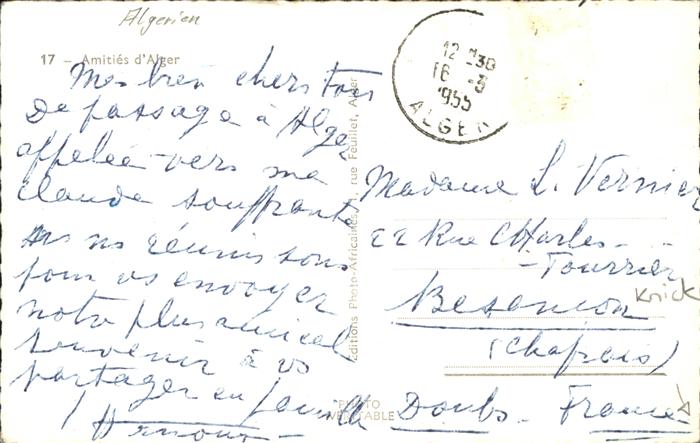 Algerien
17 - Amitiés d'Alger
Mes bien chers tous
De passage à Alger
appelée vers ma
claude souffrante
ns ns réunissons
pour vs envoyer
notre plus amical
souvenir à vs
partager en famille
Arnoux
Editions Photo-Africaines, rue Feuillet, Alger
PHOTO
VÉRITABLE
12 H30
16 -3
1955
ALGER
Madame L. Vernier
22 Rue Charles-
-Fourrier
Besançon
Knick
(Chaprais)
Doubs. France